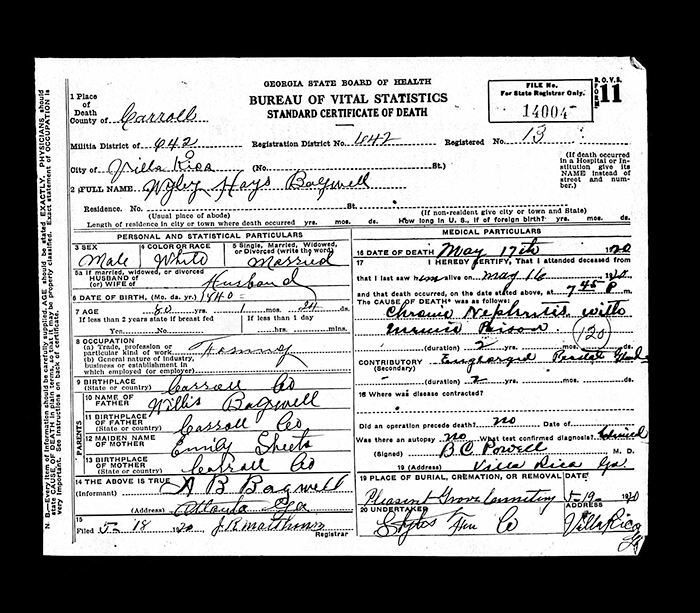 GEORGIA STATE BOARD OF HEALTH
BUREAU OF VITAL STATISTICS
STANDARD CERTIFICATE OF DEATH
FILE No.
For State Registrar Only.
14004
B.O.V.S.
FORM 11
1 Place of Death
County of Carroll
Militia District of 642 Registration District No. 642 Registered No. 13
City of Villa Rica (No. St.)
(If death occurred in a Hospital or Institution give its NAME instead of street and number.)
2 FULL NAME Wyley Hays Bagwell
Residence. No. St.
(Usual place of abode) (If non-resident give city or town and State)
Length of residence in city or town where death occurred yrs. mos. ds. How long in U. S., if of foreign birth? yrs. mos. ds.
PERSONAL AND STATISTICAL PARTICULARS
3 SEX 4 COLOR or RACE 5 Single, Married, Widowed, or Divorced (write the word)
Male White Married
5a If married, widowed, or divorced
HUSBAND of
(or) WIFE of Husband
6 DATE OF BIRTH, (Mo. da. yr.) 1840
7 AGE 80 yrs. 1 mos. 24 ds.
If less than 2 years state if breast fed If less than 1 day
Yes. No. hrs. mins.
8 OCCUPATION
(a) Trade, profession or particular kind of work
(b) General nature of industry, business or establishment in which employed (or employer)
9 BIRTHPLACE
(State or country) Carroll Co
PARENTS
10 NAME OF FATHER Willis Bagwell
11 BIRTHPLACE OF FATHER
(State or country) Carroll Co
12 MAIDEN NAME OF MOTHER Emily Sheets
13 BIRTHPLACE OF MOTHER
(State or country) Carroll Co
14 THE ABOVE IS TRUE
(Informant) A B Bagwell
(Address) Atlanta Ga
15
Filed 5-18 20 J.R. Matthews
Registrar
MEDICAL PARTICULARS
16 DATE OF DEATH May 17th 1920
17 I HEREBY CERTIFY, That I attended deceased from
that I last saw him alive on May 16 1920
and that death occurred, on the date stated above, at 7 45 P m.
The CAUSE OF DEATH* was as follows:
Chronic Nephritis with
Uremic Poison
120
(duration) 2 yrs. mos. ds.
CONTRIBUTORY Enlarged Prostate Gland
(Secondary)
(duration) 2 yrs. mos. ds.
18 Where was disease contracted?
Did an operation precede death? no Date of
Was there an autopsy no What test confirmed diagnosis? Clinical
(Signed) B.C. Powell M. D.
19 (Address) Villa Rica Ga.
19 PLACE OF BURIAL, CREMATION, OR REMOVAL DATE
Pleasant Grove Cemetery 5-19- 1920
20 UNDERTAKER ADDRESS
Fur Co Villa Rica
Ga
N. B.—Every item of information should be carefully supplied. AGE should be stated EXACTLY. PHYSICIANS should
state CAUSE OF DEATH in plain terms, so that it may be properly classified. Exact statement of OCCUPATION is
very important. See instructions on back of certificate.